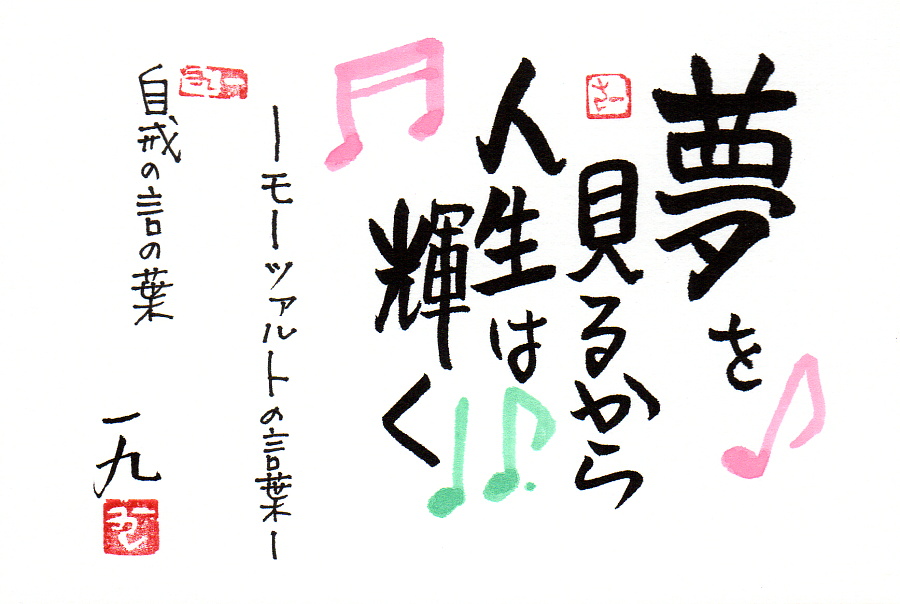 夢を
見るから
人生は
輝く
ーモーツァルトの言葉ー
自戒の言の葉
一九